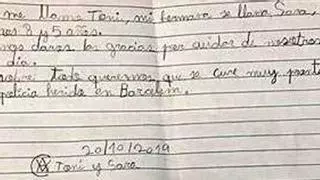 me llamo Toni, mi hermana se llama Sara,
8 y 5 años.
daros las gracias por cuidar de nosotros
dia.
sobre todo queremos que se cure muy pronto
policia herido en Barcelona.
20/10/2019
Toni y Sara